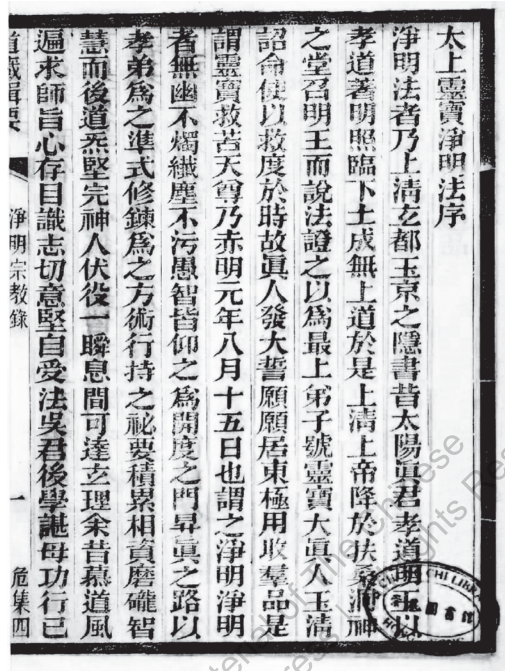 太上靈寶淨明法序
淨明法者乃上清玄都玉京之隱書昔太陽眞君孝道明王以
孝道著明照臨下土成無上道於是上清上帝降於扶桑洞神
之堂召明王而說法證之以爲最上弟子號靈寶大眞人玉清
詔命使以救度於時故眞人發大誓願願居東極用收羣品是
謂靈寶救苦天尊乃赤明元年八月十五日也謂之淨明淨明
者無幽不燭纖塵不污愚智皆仰之爲開度之門昇眞之路以
孝弟爲之準式修鍊爲之方術行持之祕要積累相資磨礲智
慧而後道炁堅完神人伏役一瞬息間可達玄理余昔慕道風
遍求師旨心存目識志切意堅自受法吳君後學諶母功行已
道藏輯要
淨明宗教錄
一
危集四
圖書館